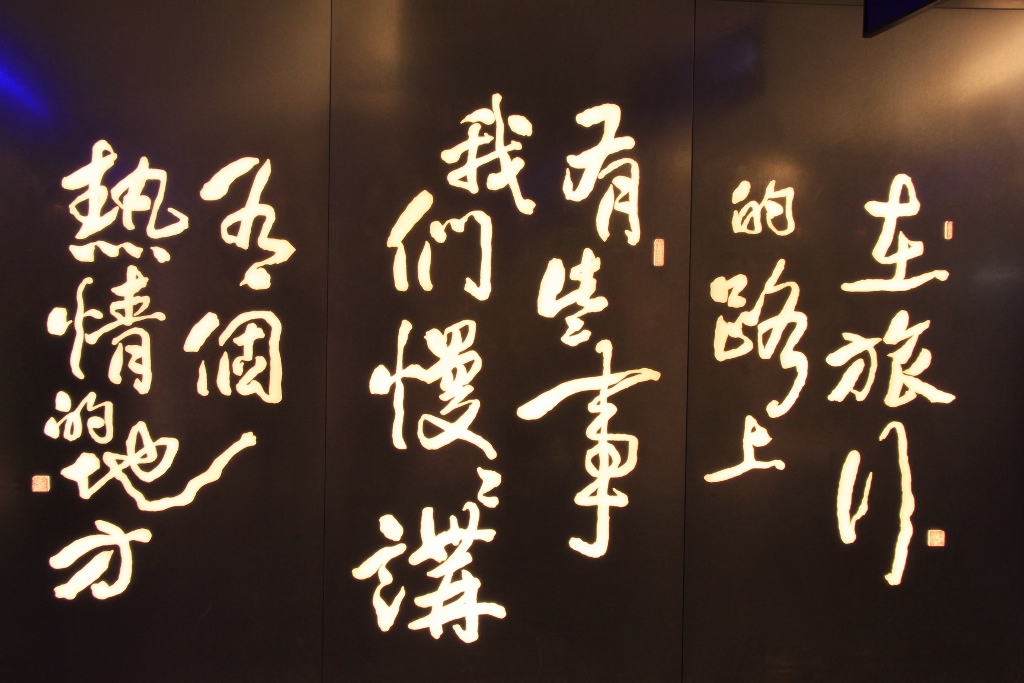 在旅行
的路上
有些事
我們慢〻講
有個
熱情的地方